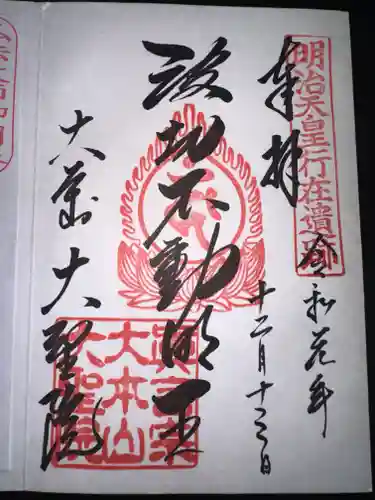 明治天皇行在遺跡
奉拝
令和元年
十二月十三日
波切不動明王
大本山大聖院
眞言宗
大本山
大聖院